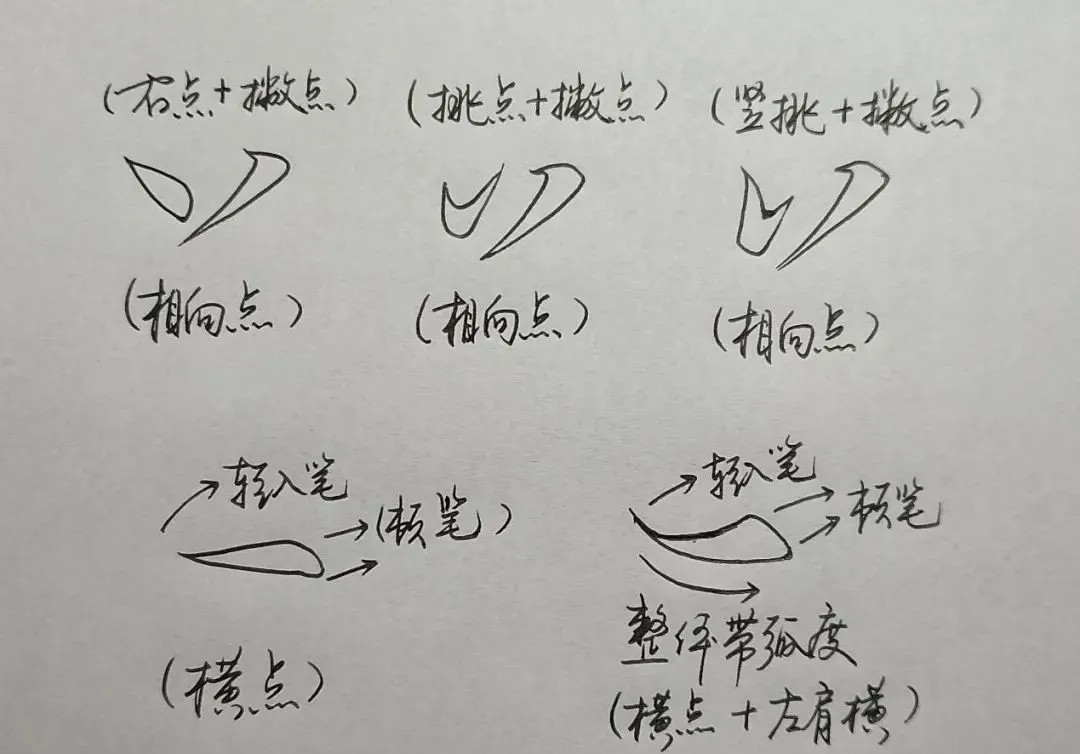 (右点+撇点) (挑点+撇点) (竖挑+撇点)
(相向点) (相向点) (相向点)
轻入笔 轻入笔
(顿笔) 顿笔
整体带弧度
(横点) (横点+左肩横)